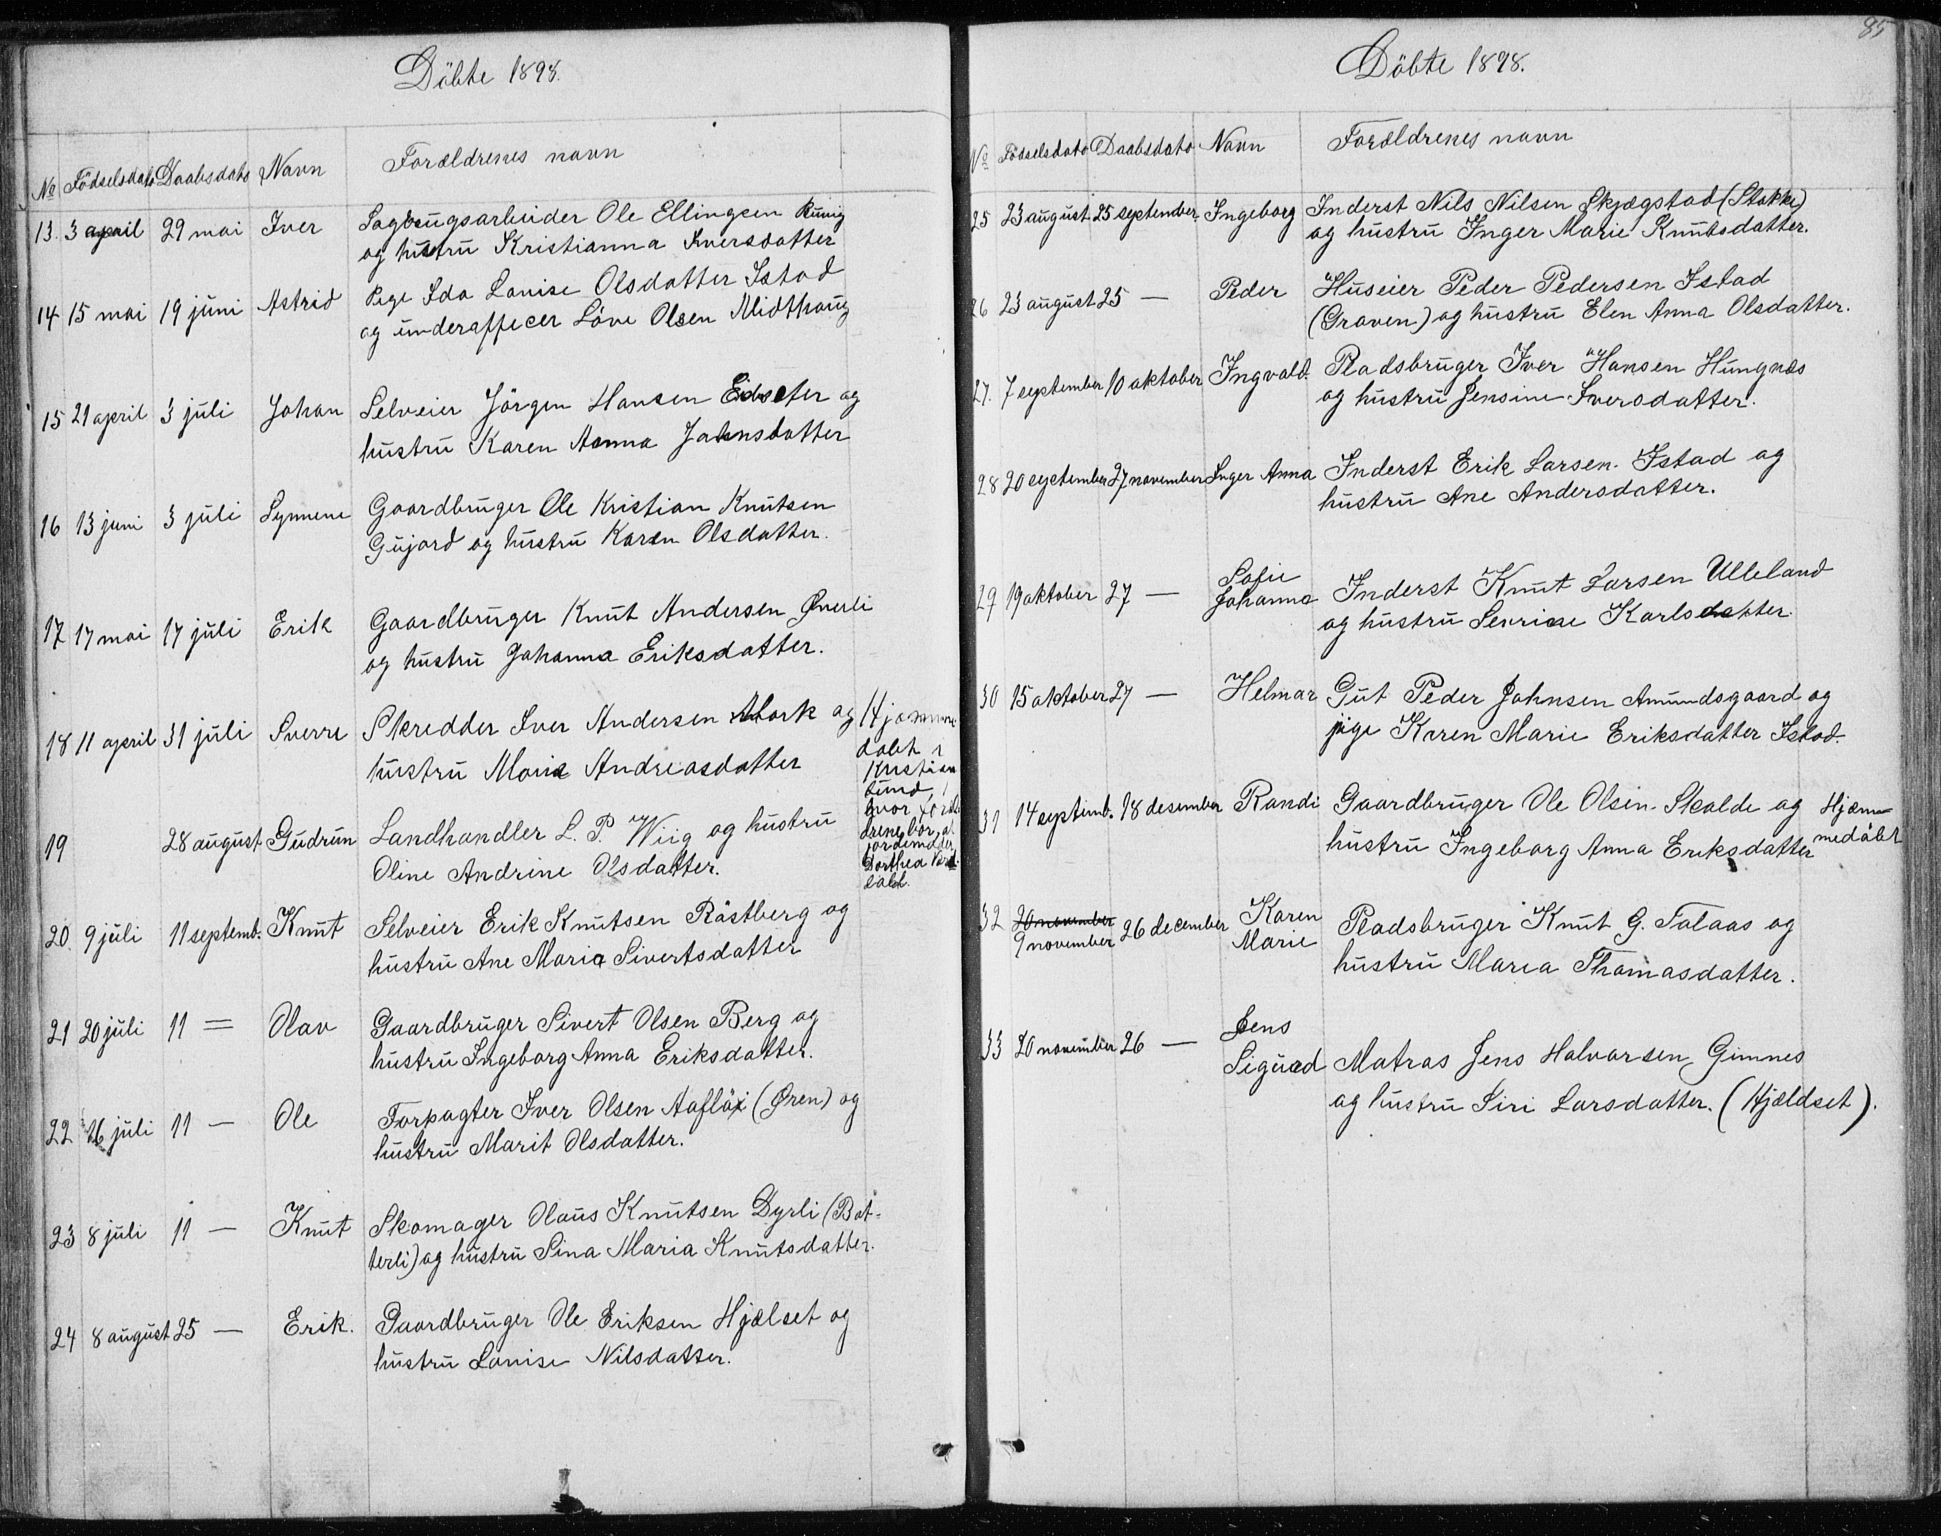 Döbte 1898.
No Födselsdato Daabsdato Navn Forældrenes navn
13. 3 april 29 mai Iver Sagbrugsarbeider Ole Ellingsen
og hustru Kristianna Iversdatter
14 15 mai 19 juni Astrid Pige Ida Louise Olsdatter Istad
og underofficer Löve Olsen Midthaug
15 21 april 3 juli Johan Selveier Jörgen Hansen Eidseter og
hustru Karen Anna Johnsdatter
16 13 juni 3 juli Synnene Gaardbruger Ole Kristian Knutsen
Gujord og hustru Karen Olsdatter.
17 17 mai 17 juli Erik Gaardbruger Knut Andersen Øverli
og hustru Johanna Eriksdatter.
18 11 april 31 juli Sverre Skredder Iver Andersen Mork og
hustru Marie Andreasdatter
Hjemme
døbt i
Kristian
sund,
hvor foræl
drene bor, af
jordemoder
Dorthea
19 28 august Gudrun Landhandler L. P. Wiig og hustru
Oline Andrine Olsdatter.
20. 9 juli 11 septemb. Knut Selveier Erik Knutsen Råstberg og
hustru Ane Maria Sivertsdatter
21 20 juli 11 = Olav Gaardbruger Sivert Olsen Berg og
hustru Ingeborg Anna Eriksdatter.
22 16 juli 11 — Ole Forpagter Iver Olsen Aafløi (Øren) og
hustru Marit Olsdatter.
23 8 juli 11 — Knut Skomager Olaus Knutsen Dyrli (Bot-
terli) og hustru Sina Maria Knutsdatter.
24 8 august 25 — Erik. Gaardbruger Ole Eriksen Hjelset og
hustru Louise Nilsdatter.
85
Döbte 1898.
No Födselsdato Daabsdato Navn Forældrenes navn
25 23 august 25 september. Ingeborg Inderst Nils Nilsen Skjægstad (Stokke)
og hustru Inger Marie Knutsdatter.
26 23 august 25 — Peder Huseier Peder Pedersen Istad
(Graven) og hustru Elen Anna Olsdatter.
27. 7 september 10 oktober Ingvald. Pladsbruger Iver Hansen Hungnes
og hustru Jensine Iversdatter.
28 20 september 27 november Inger Anna Inderst Erik Larsen Istad og
hustru Ane Andersdatter.
29 19 oktober 27 — Sofie
Johanna Inderst Knut Larsen Ulleland
og hustru Serine Karlsdatter.
30 15 oktober 27 — Helmar Gut Peder Johnsen Amundsgaard og
pige Karen Marie Eriksdatter Istad.
31 14 septemb. 18 desember Randi Gaardbruger Ole Olsen Skalde og
hustru Ingeborg Anna Eriksdatter
Hjæm-
medöbt
32 20 november
9 november 26 december Karen
Marie Pladsbruger Knut G. Talaas og
hustru Maria Thomasdatter.
33 20 november 26 — Jens
Sigurd Matros Jens Halvorsen Gimnes
og hustru Siri Larsdatter. (Hjældset).